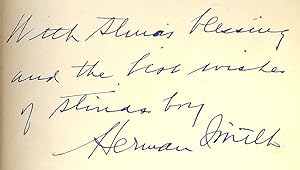 With Stina's blessing
and the best wishes
of Stinas boy
Herman Smith